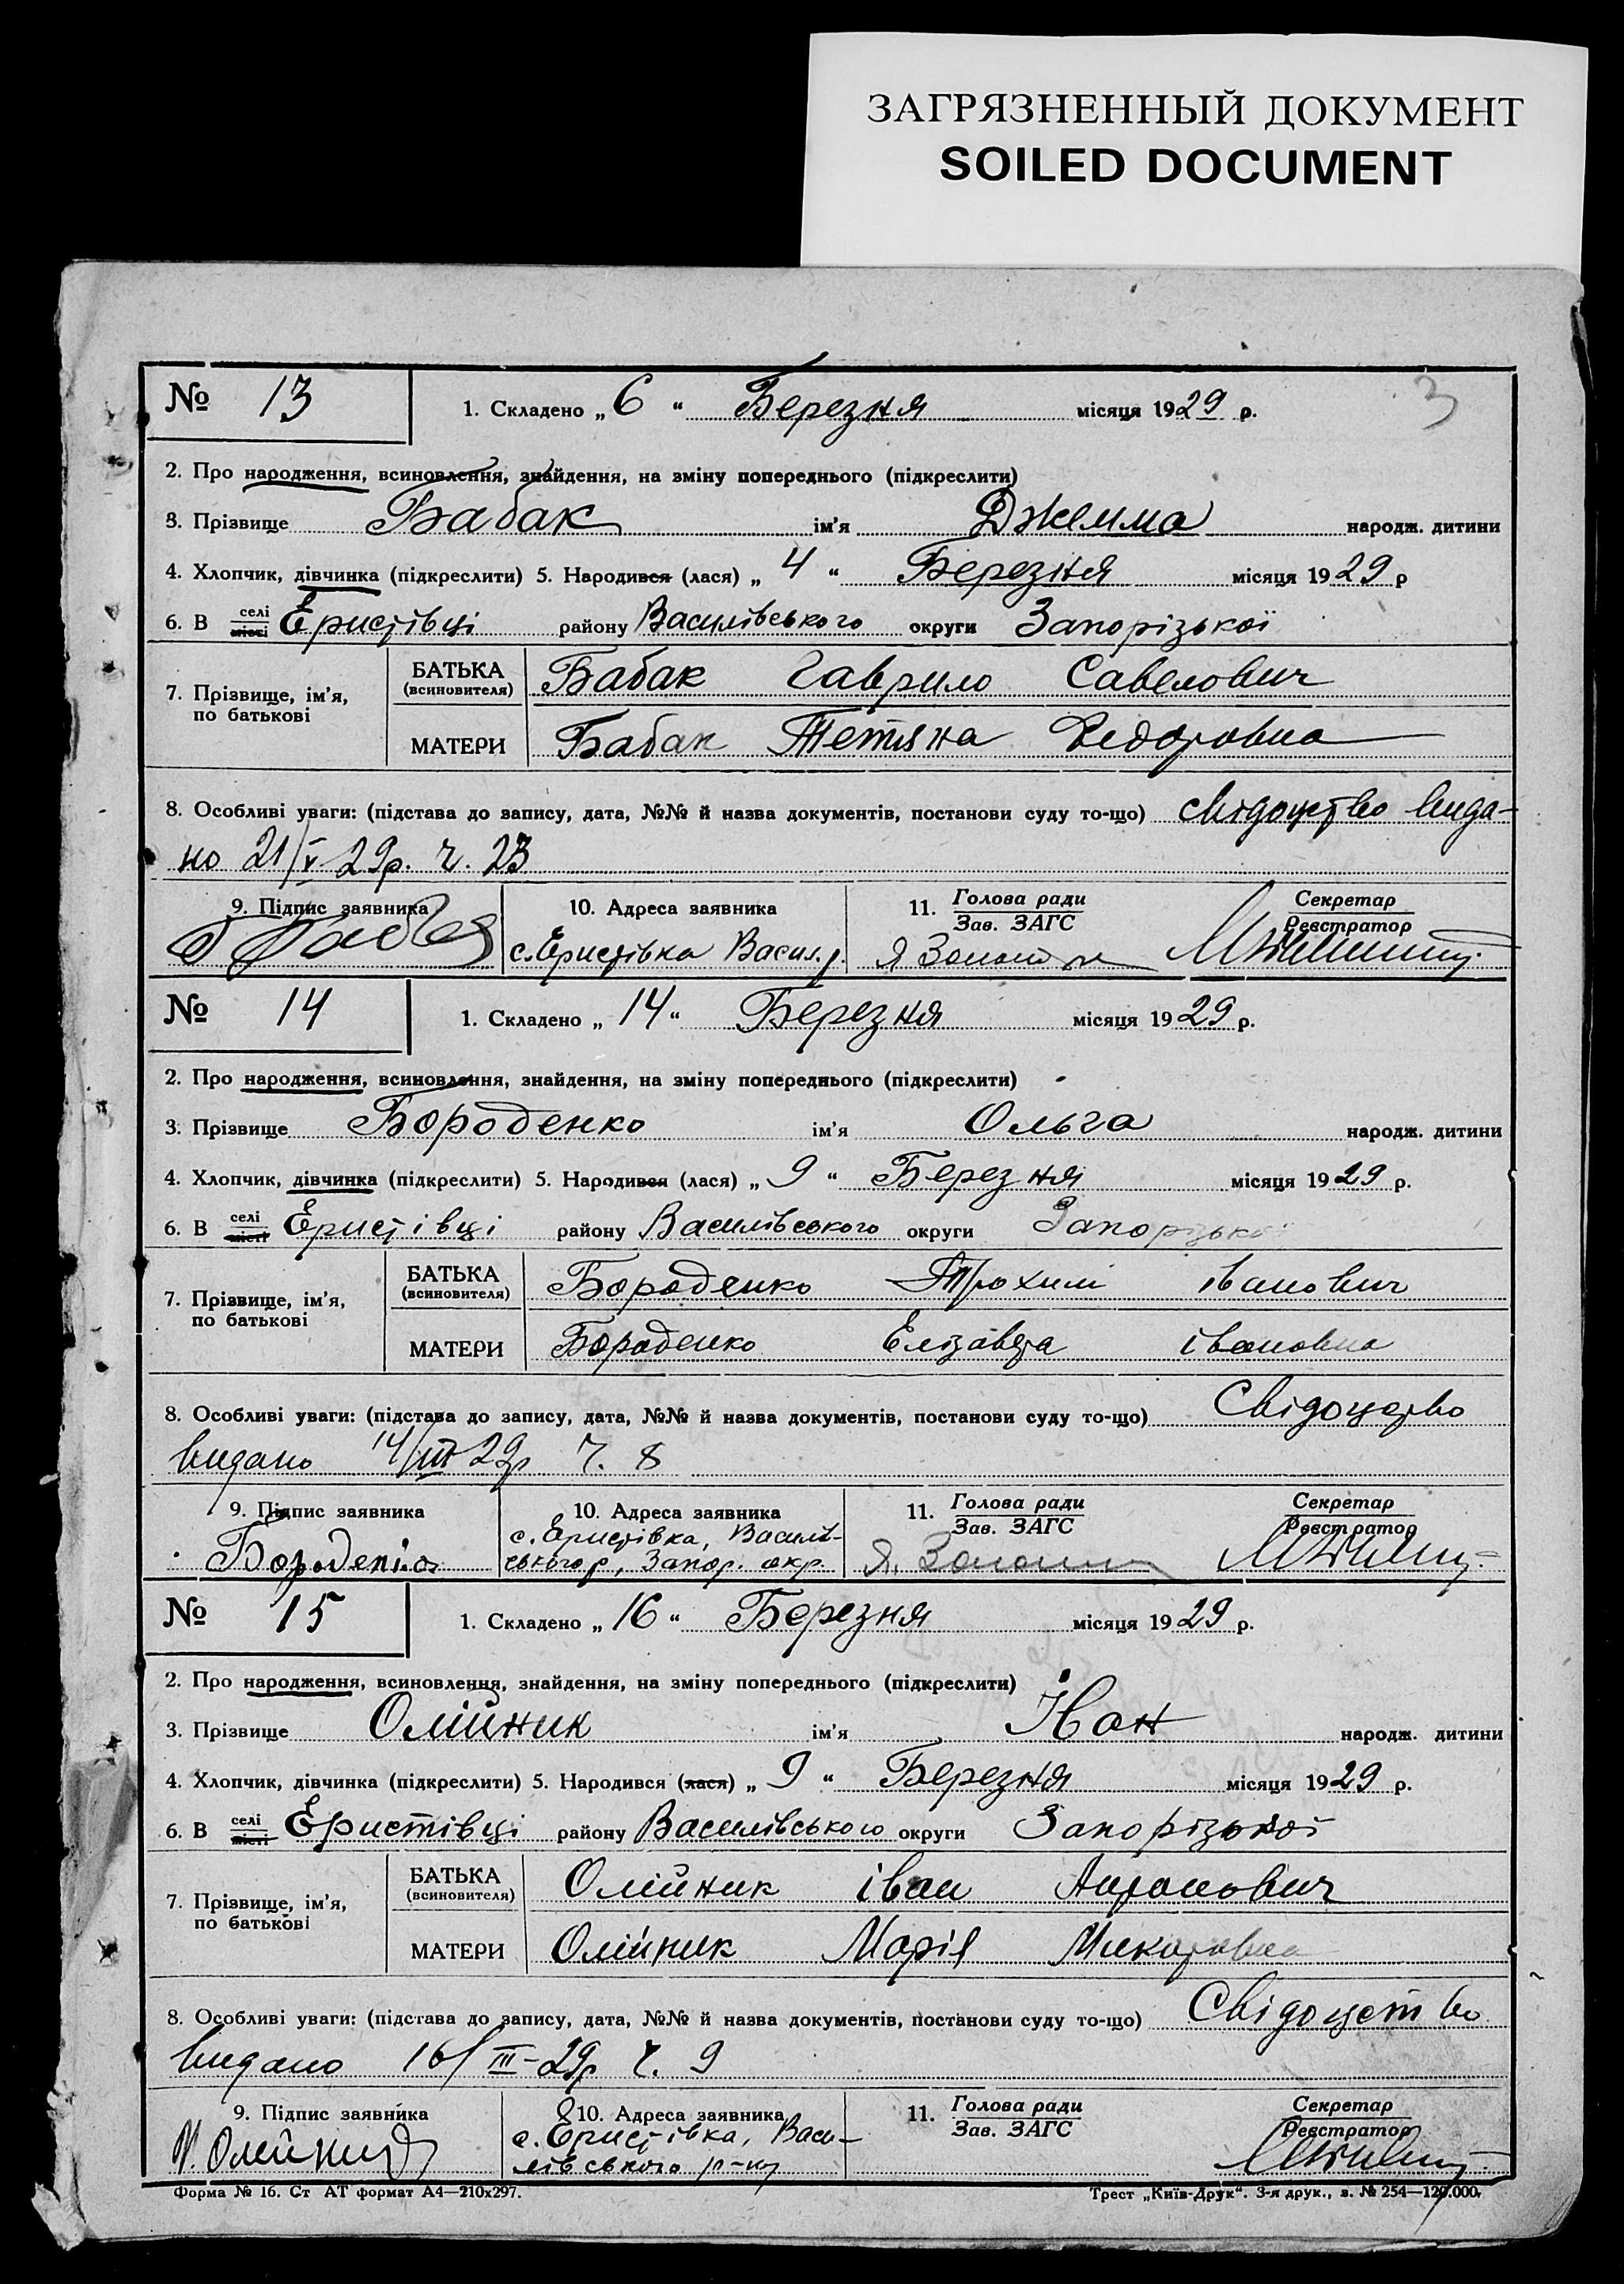 ЗАГРЯЗНЕННЫЙ ДОКУМЕНТ
SOILED DOCUMENT
3
№ 13 1. Складено „ 6 “ Березня місяця 1929 р.
2. Про народження, всиновлення, знайдення, на зміну попереднього (підкреслити)
3. Прізвище Бабак ім'я Джемма народж. дитини
4. Хлопчик, дівчинка (підкреслити) 5. Народився (лася) „ 4 “ Березня місяця 1929 р
6. В селі місті Єристівці району Василівського округи Запорізької
7. Прізвище, ім'я, по батькові
БАТЬКА (всиновителя) Бабак Гаврило Савелович
МАТЕРИ Бабак Тетяна Федоровна
8. Особливі уваги: (підстава до запису, дата, №№ й назва документів, постанови суду то-що) свідоцтво вида-
но 21/V 29р. ч. 23
9. Підпис заявника 10. Адреса заявника 11. Голова ради Зав. ЗАГС Секретар Реєстратор
с. Єристівка Васил. р.
№ 14 1. Складено „ 14 “ Березня місяця 1929 р.
2. Про народження, всиновлення, знайдення, на зміну попереднього (підкреслити)
3. Прізвище Бороденко ім'я Ольга народж. дитини
4. Хлопчик, дівчинка (підкреслити) 5. Народився (лася) „ 9 “ Березня місяця 1929 р.
6. В селі місті Єристівці району Василівського округи Запорізької
7. Прізвище, ім'я, по батькові
БАТЬКА (всиновителя) Бороденко Трохим іванович
МАТЕРИ Бороденко Елізавета івановна
8. Особливі уваги: (підстава до запису, дата, №№ й назва документів, постанови суду то-що) Свідоцтво
видано 14/III 29р ч. 8
9. Підпис заявника 10. Адреса заявника 11. Голова ради Зав. ЗАГС Секретар Реєстратор
с. Єристівка, Василів-
ського р, Запор. окр.
№ 15 1. Складено „ 16 “ Березня місяця 1929 р.
2. Про народження, всиновлення, знайдення, на зміну попереднього (підкреслити)
3. Прізвище Олійник ім'я Іван народж. дитини
4. Хлопчик, дівчинка (підкреслити) 5. Народився (лася) „ 9 “ Березня місяця 1929 р.
6. В селі місті Єристівці району Василівського округи Запорізької
7. Прізвище, ім'я, по батькові
БАТЬКА (всиновителя) Олійник іван
МАТЕРИ Олійник Марія
8. Особливі уваги: (підстава до запису, дата, №№ й назва документів, постанови суду то-що) Свідоцтво
видано 16/III-29р ч. 9
9. Підпис заявника 10. Адреса заявника 11. Голова ради Зав. ЗАГС Секретар Реєстратор
с. Єристівка, Васи-
лівського р-ну
Форма № 16. Ст АТ формат А4—210х297. Трест „Київ-Друк“. 3-я друк., з. № 254—120.000.